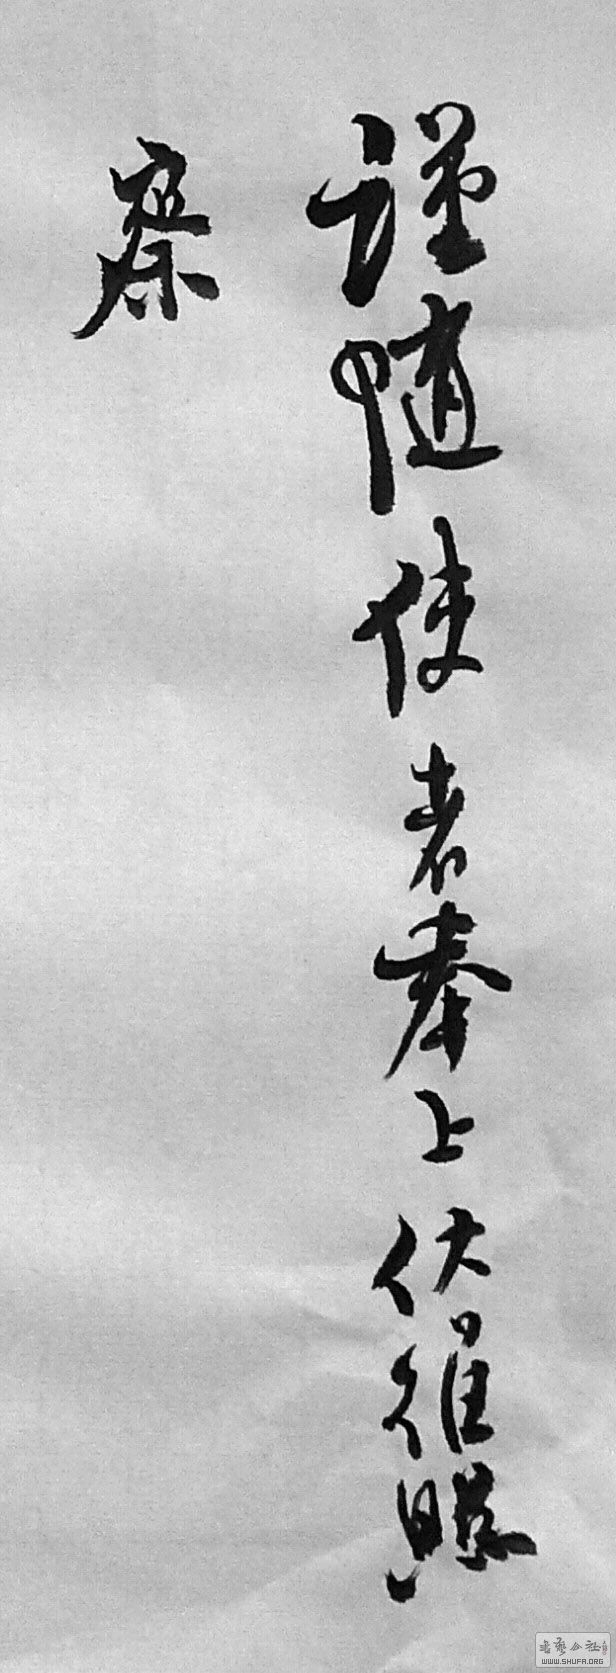 謹隨使者奉上伏惟照
察
WWW.SHUFA.ORG